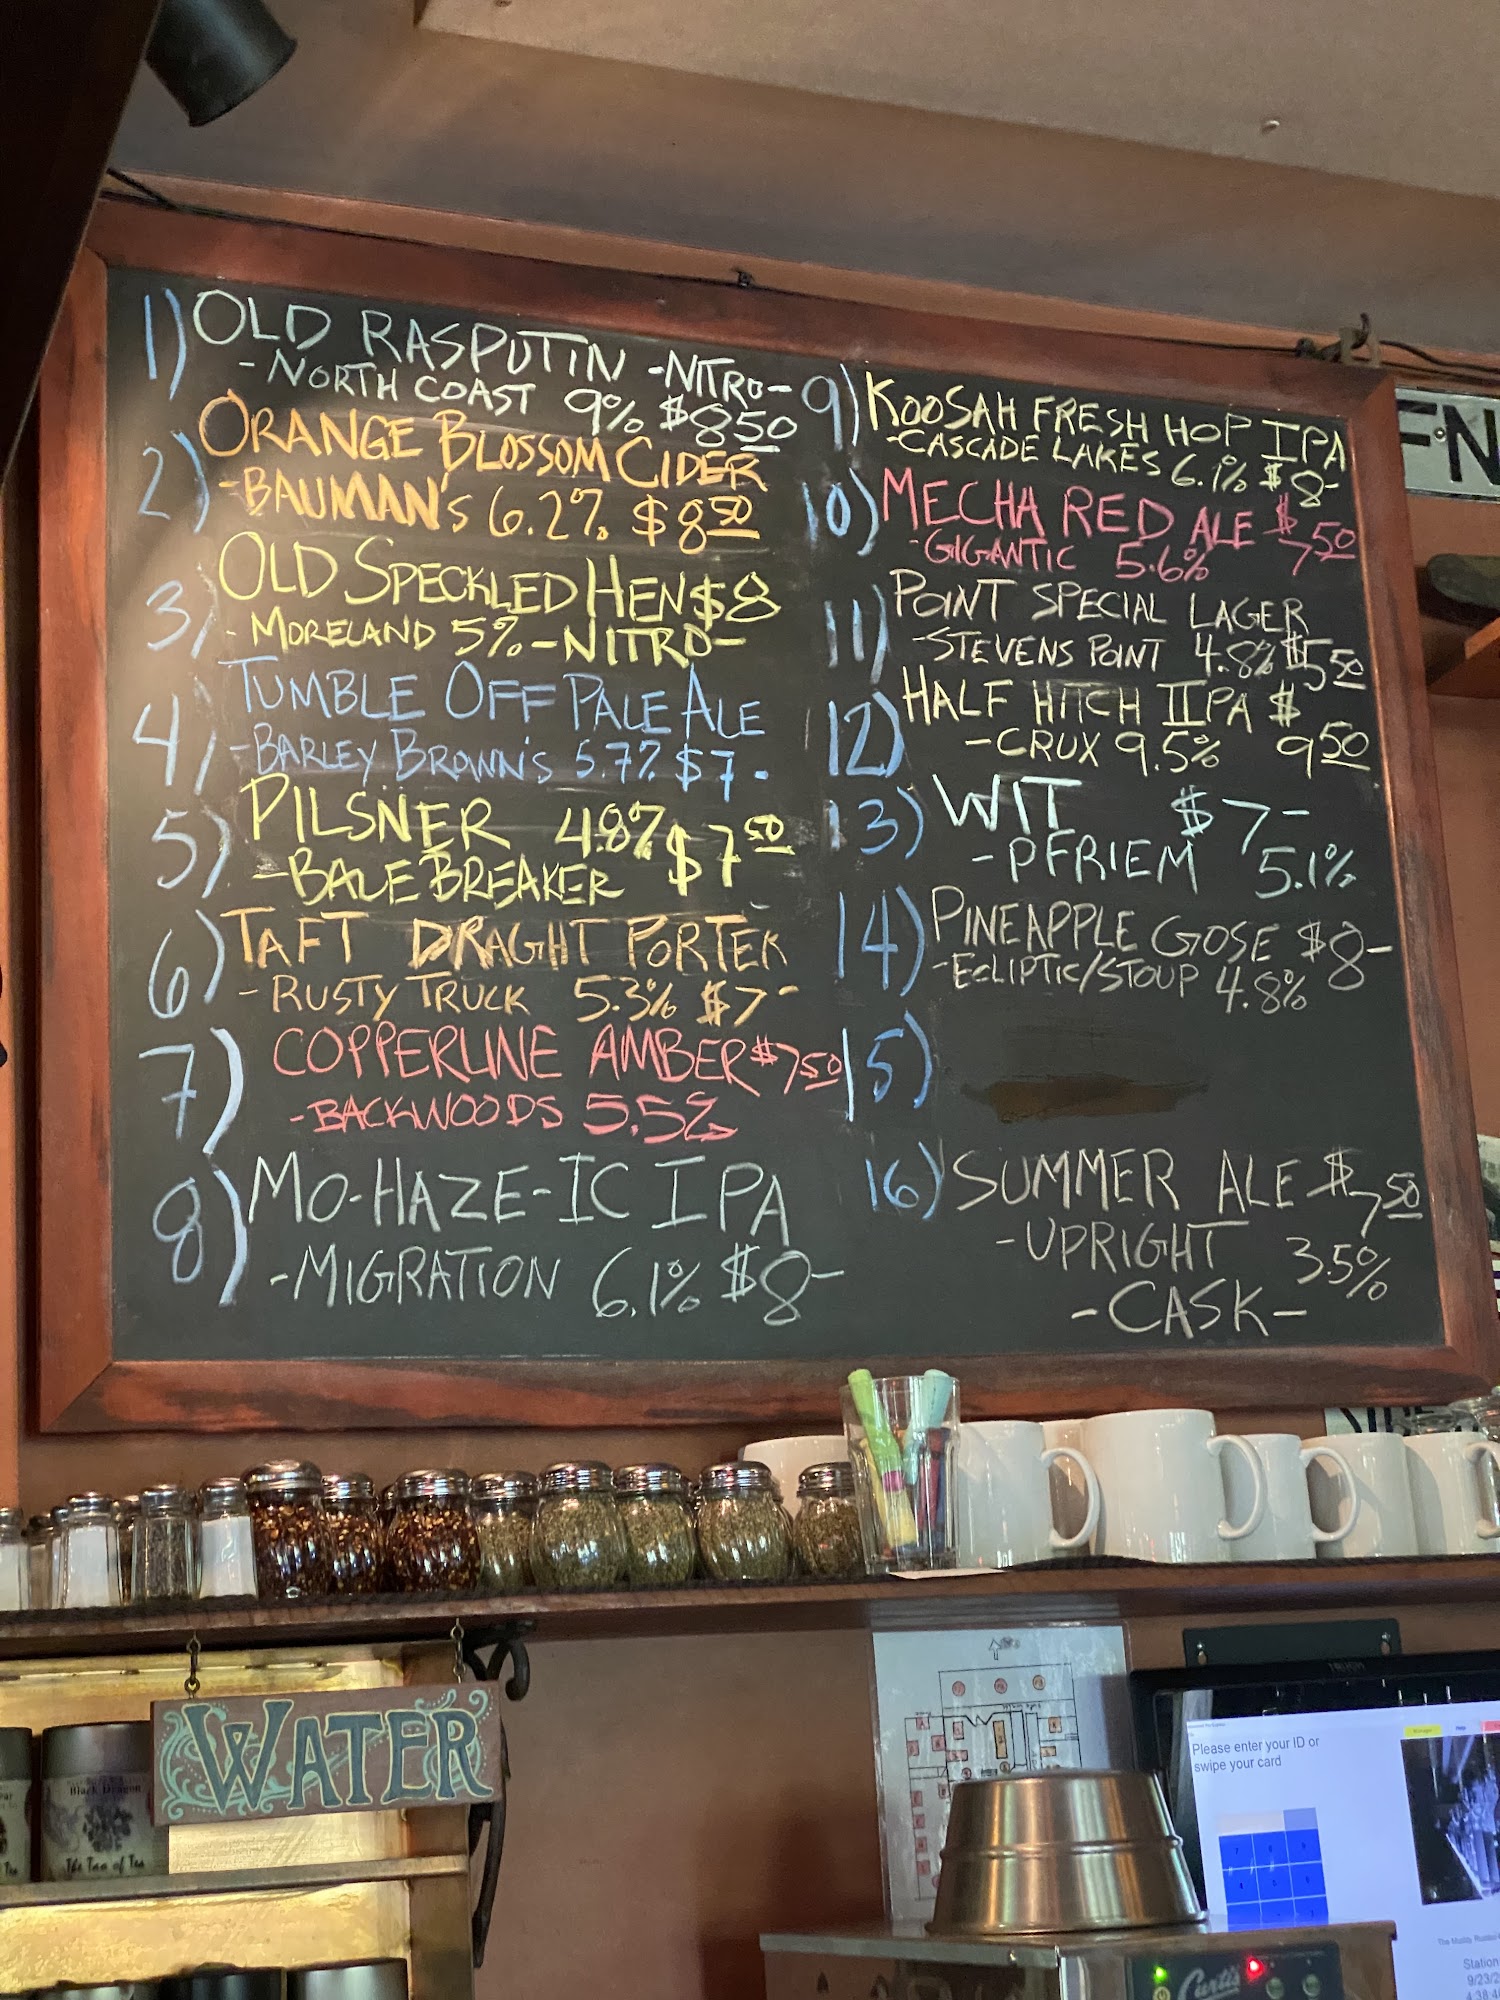 1) OLD RASPUTIN -NITRO-
-NORTH COAST 9% $8 50
2) ORANGE BLOSSOM CIDER
-BAUMAN'S 6.2% $8 50
3) OLD SPECKLED HEN $8
- MORELAND 5% -NITRO-
4) TUMBLE OFF PALE ALE
-BARLEY BROWN'S 5.7% $7-
5) PILSNER 4.8% $7 50
-BALE BREAKER
6) TAFT DRAGHT PORTER
- RUSTY TRUCK 5.3% $7-
7) COPPERLINE AMBER $7 50
-BACKWOODS 5.5%
8) MO-HAZE-IC IPA
-MIGRATION 6.1% $8-
9) KOOSAH FRESH HOP IPA
-CASCADE LAKES 6.1% $8-
10) MECHA RED ALE $7 50
-GIGANTIC 5.6%
11) POINT SPECIAL LAGER
-STEVENS POINT 4.8% $5 50
12) HALF HITCH IIPA $9 50
-CRUX 9.5%
13) WIT $7-
-PFRIEM 5.1%
14) PINEAPPLE GOSE $8-
-ECLIPTIC/STOUP 4.8%
15)
16) SUMMER ALE $7 50
-UPRIGHT 3.5%
-CASK-
WATER
Black Dragon
The Tao of Tea
Please enter your ID or
swipe your card
Manager Help
Station
9/23/2
4:38:4
Curtis